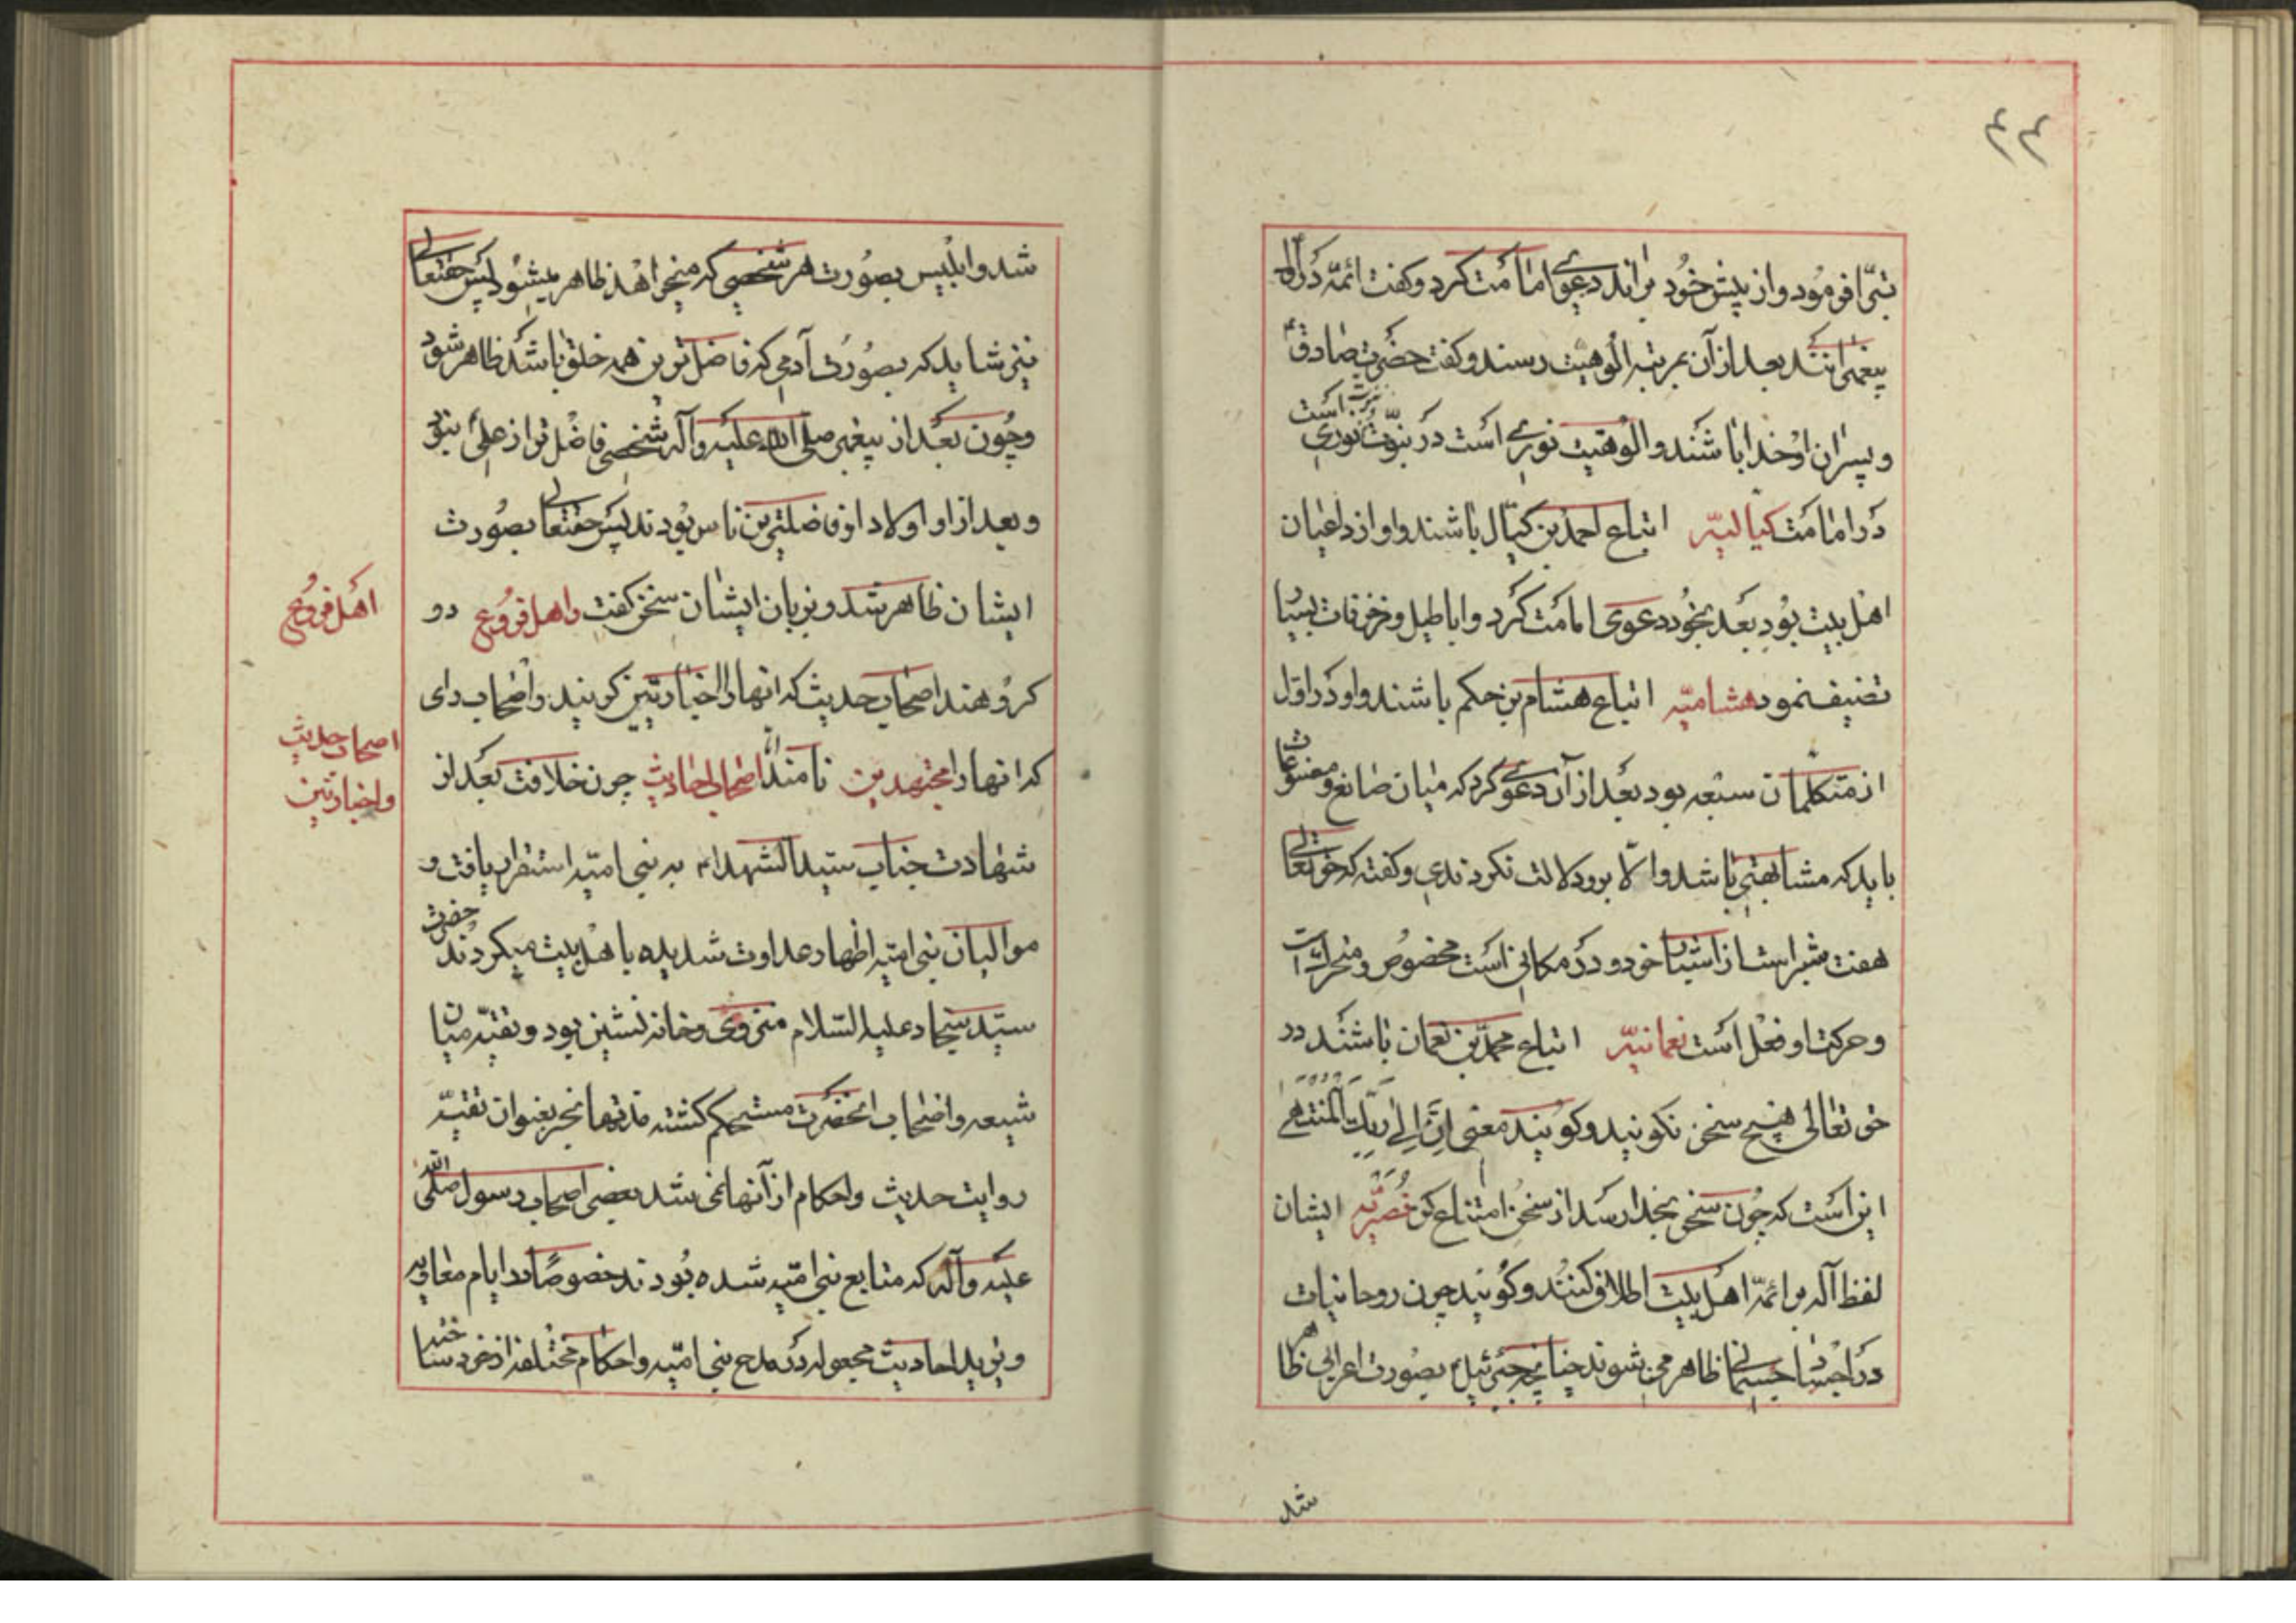 ۴۴
تبرّا فرمود و از پیش خود براند دعوی امامت کرد و گفت ائمّه در اول
پیغمبرانند بعد از آن بمرتبه الوهیت رسند و گفت حضرت صادق ع
و پسران او خدا باشند و الوهیت نوری است در نبوّت و نبوّت نوری است
در امامت کیالیّه اتباع احمد بن کیّال باشند و او از داعیان
اهل بیت بود بعد بخود دعوی امامت کرد و اباطیل و خزخرفات بسیار
تصنیف نمود هشامیّه اتباع هشام بن حکم باشند و او در اوّل
از متکلّمان شیعه بود بعد از آن دعوی کرد که میان صانع و مصنوعات
باید که مشابهتی باشد و الّا برو دلالت نکردندی و گفته که حق تعالی
هفت شبر است از اشبار خود و در مکانی است مخصوص و متحرّک است
و حرکت او فعل است نعمانیّه اتباع محمّد بن نعمان باشند در
حق تعالی هیچ سخن نگویند و گویند معنی اِنَّ اِلی رَبِّکَ المُنتَهی
این است که چون سخن بخدا رسد از سخن امتناع کن نُصیریّه ایشان
لفظ آله بر ائمّه اهل بیت اطلاق کنند و گویند چون روحانیات
در اجساد جسمانی ظاهر می شوند چنانچه جبرئیل بصورت اعرابی ظاهر
شد
شد و ابلیس بصورت هر شخصی که میخواهد ظاهر میشود پس حقتعالی
نیز شاید که بصورت آدمی که فاضل ترین همه خلق باشد ظاهر شود
و چون بعد از پیغمبر صلی الله علیه و آله شخصی فاضل تر از علی نبود
و بعد از او اولاد او فاضلترین ناس بودند پس حقتعالی بصورت
ایشان ظاهر شد و بزبان ایشان سخن گفت و اهل فروع دو
اهل فروع
گروهند اصحاب حدیث که انها را اخباریّین گویند و اصحاب رای
اصحاب حدیث
که انها را مجتهدین نامند اما اصحاب احادیث چون خلافت بعد از
و اخباریّین
شهادت جناب سیّد الشهداء به بنی امیّه استقرار یافت و
موالیان بنی امیّه اظهار عداوت شدیده با اهل بیت میکردند حضرت
سیّد سجاد علیه السّلام منزوی و خانه نشین بود و تقیّه میان
شیعه و اصحاب انحضرت مستحکم گشته مدتها بجز بعنوان تقیّه
روایت حدیث و احکام از آنها نمی شد بعضی اصحاب رسول صلی الله
علیه و آله که متابع بنی امیّه شده بودند خصوصًا در ایام معاویه
و یزید احادیث مجعوله در مدح بنی امیّه و احکام مختلفه از خود ساختند